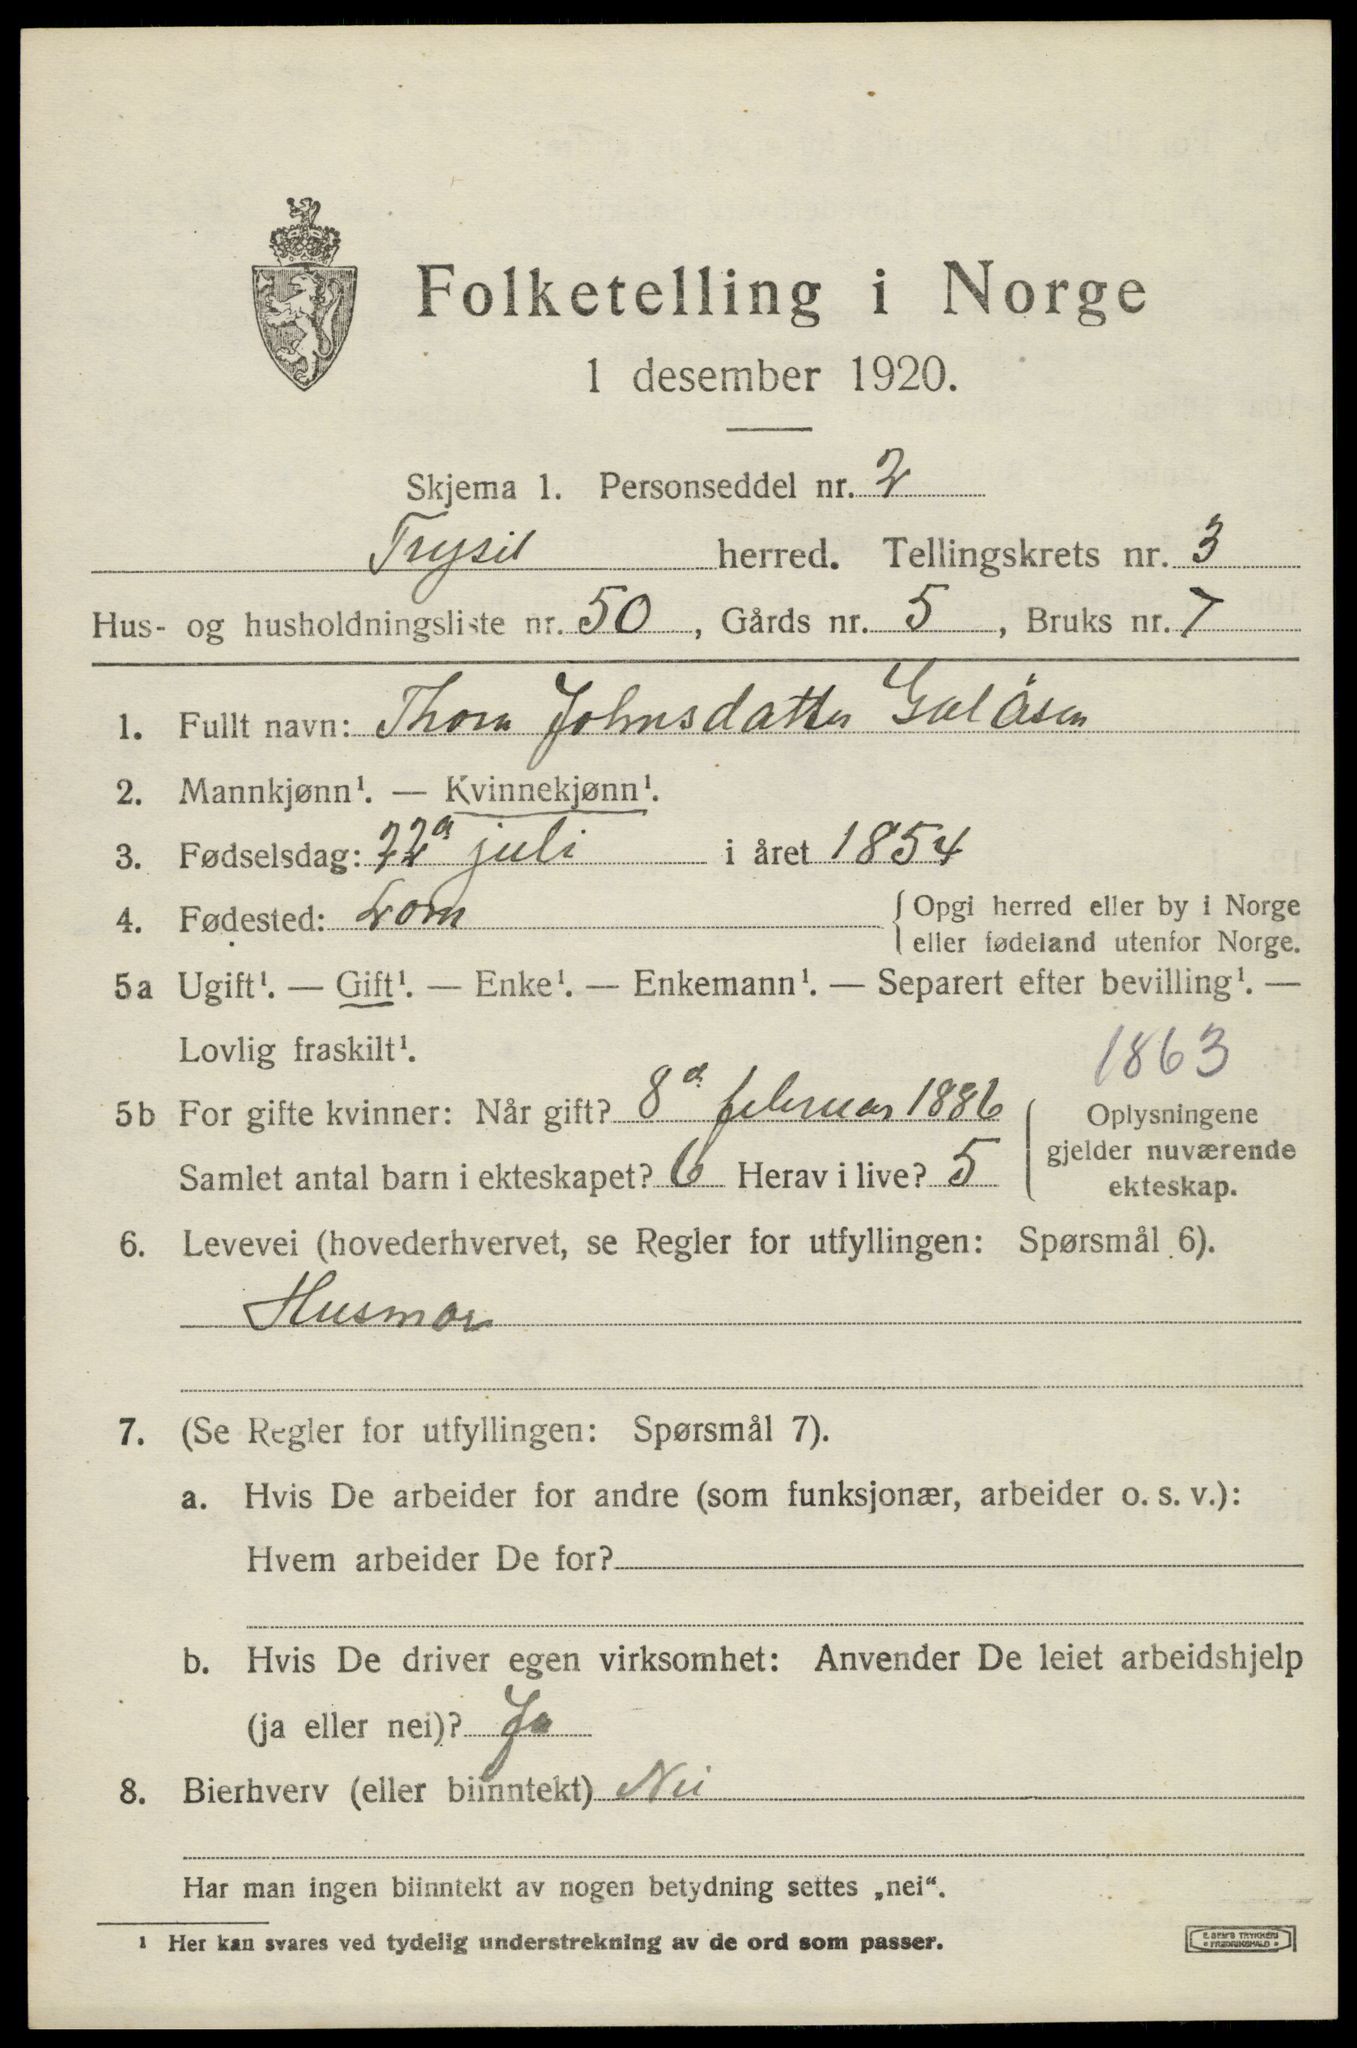 Folketelling i Norge
1 desember 1920.
Skjema 1. Personseddel nr. 2
Trysil herred. Tellingskrets nr. 3
Hus- og husholdningsliste nr. 50, Gårds nr. 5, Bruks nr. 7
1. Fullt navn: Thora Johnsdatter Galåsen
2. Mannkjønn¹. — Kvinnekjønn¹.
3. Fødselsdag: 22ᵈ juli i året 1854
4. Fødested: Lom {Opgi herred eller by i Norge
eller fødeland utenfor Norge.
5a Ugift¹. — Gift¹. — Enke¹. — Enkemann¹. — Separert efter bevilling¹. —
Lovlig fraskilt¹.
1863
5b For gifte kvinner: Når gift? 8ᵈ februar 1886
Samlet antal barn i ekteskapet? 6 Herav i live? 5
{Oplysningene
gjelder nuværende
ekteskap.
6. Levevei (hovederhvervet, se Regler for utfyllingen: Spørsmål 6).
Husmor
7. (Se Regler for utfyllingen: Spørsmål 7).
a. Hvis De arbeider for andre (som funksjonær, arbeider o. s. v.):
Hvem arbeider De for?
b. Hvis De driver egen virksomhet: Anvender De leiet arbeidshjelp
(ja eller nei)? Ja
8. Bierhverv (eller biinntekt) Nei
Har man ingen biinntekt av nogen betydning settes „nei“.
¹ Her kan svares ved tydelig understrekning av de ord som passer.
E. SEM'S TRYKKERI
FREDRIKSHALD